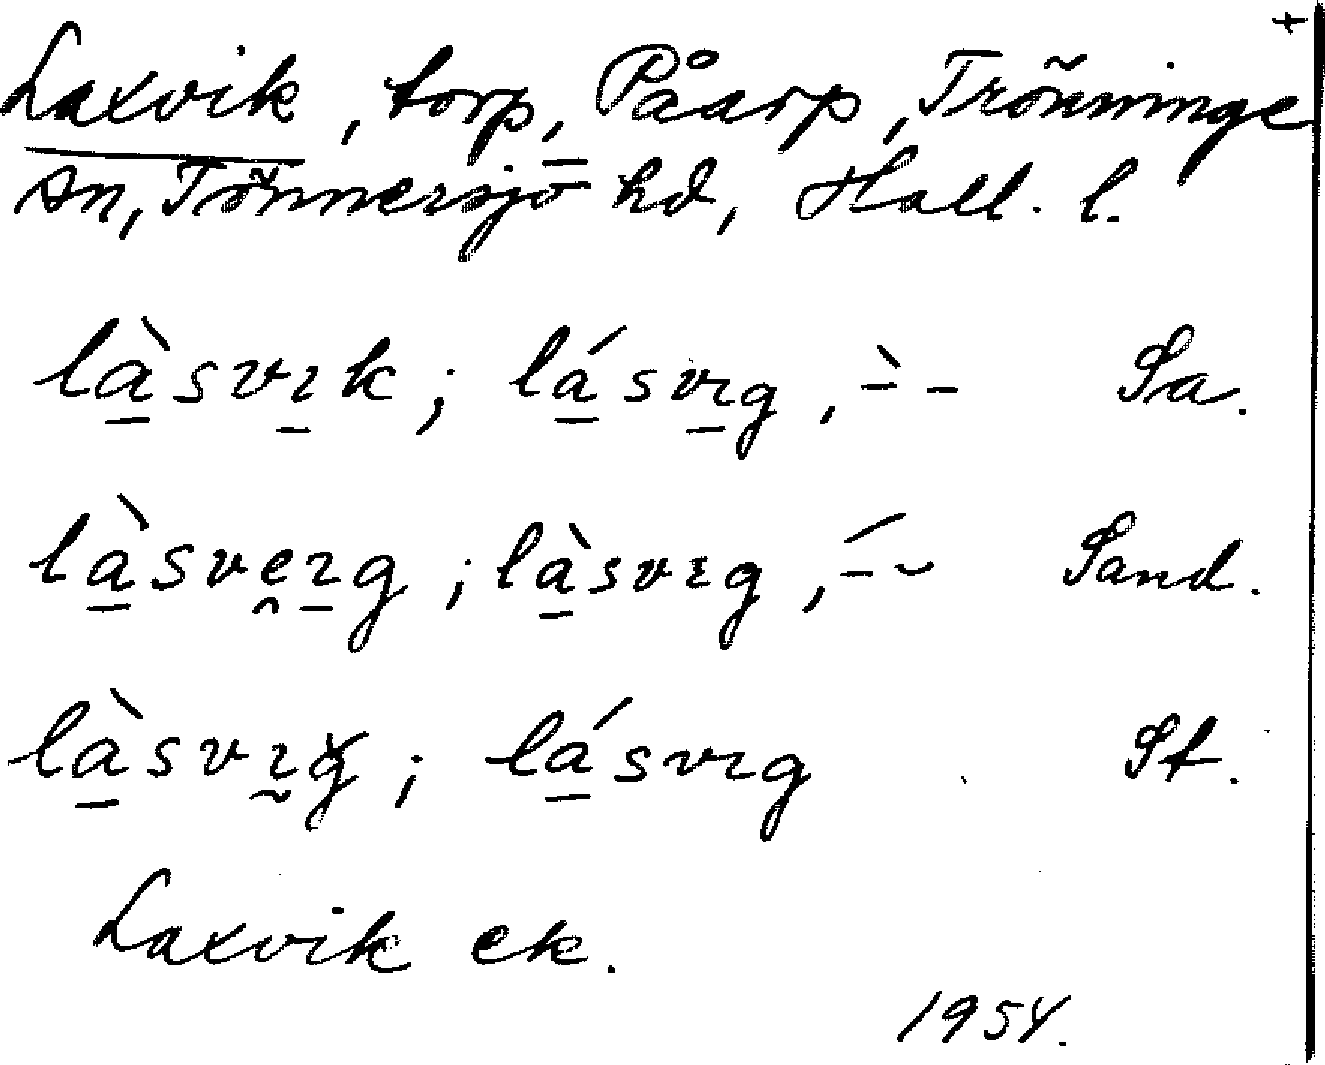 +
Laxvik, torp, Påarp, Trönninge
sn, Tönnersjö hd, Hall. l.
là̱svı̱k; lá̱svı̱g, -̀ - Sa.
là̱sve̯ı̱g; là̱svıg, -́ ~ Sand.
là̱svı̰g; lá̱svıg St.
Laxvik ek.
1954.